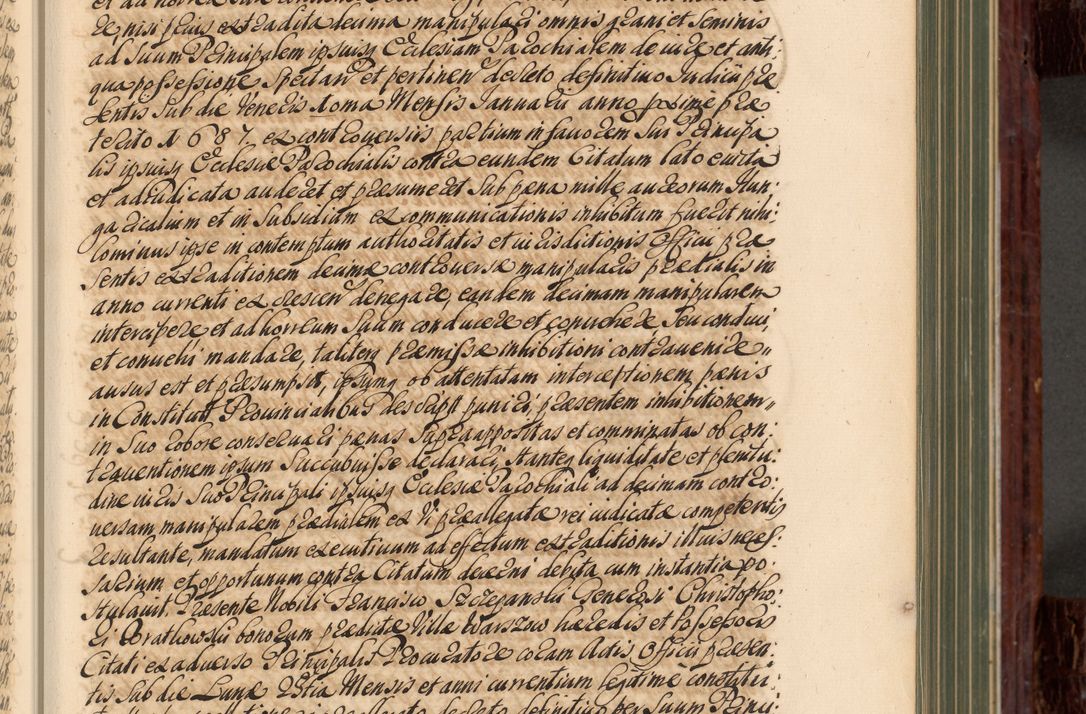 re, nisi prius extradita decima manipulari omnis grani et seminis
ad suum Principalem ipsiusq Ecclesiam Parochialem de iure et anti:
qua possessione spectan et pertinen decreto definitivo Iudicii præ
sentis sub die Veneris Mensis Ianuarii anno proxime præ
terito 1687. ex controversiis partium in favorem sui Principa
lis ipsiusq Ecclesiæ Parochialis contra eundem Citatum lato
et adiudicata auderet et præsumeret sub pæna mille aureorum Hun:
garicalium et in subsidium excommunicationis inhibitum fuerit nihi:
lominus ipse in contemptum authoritatis et iurisdictionis Officii præ
sentis extraditionem decimæ controversæ manipularis prædialis in
anno currenti ex crescen denegare, eandem decimam manipularem
intercipere et ad horreum suum conducere et convehere seu conduci,
et convehi mandare, taliterq præmissæ inhibitioni contravenire
ausus est et præsumpsit, ipsumq ob attentatam interceptionem pænis
in Constitutt Provincialibus descriptt puniri, præsentem inhibitionem
in suo robore conservari pænas supraappositas et comminatas ob con:
traventionem ipsum succubuisse declarari, stanteq liquiditate et plenitu:
dine iuris sui Principali ipsiusq Ecclesiæ Parochiali ad decimam contro:
versam manipularem prædialem ex vi præallegatæ rei iudicatæ competentis
resultante, mandatum executivum ad effectum extraditionis illius neces:
sarium et opportunum contra Citatum decerni debita cum instantia po:
stulavit. Præsente Nobili Francisco Szczepanski Generosi Christopho:
ri bonorum præditæ Villæ Warszow hæredis et Possessoris
Citati ex adverso Principalis Procuratore coram Actis Officii præsen:
tis sub die Lunæ Mensis et anni currentium legitime constitu:
decreto definitivo per suum Princi: